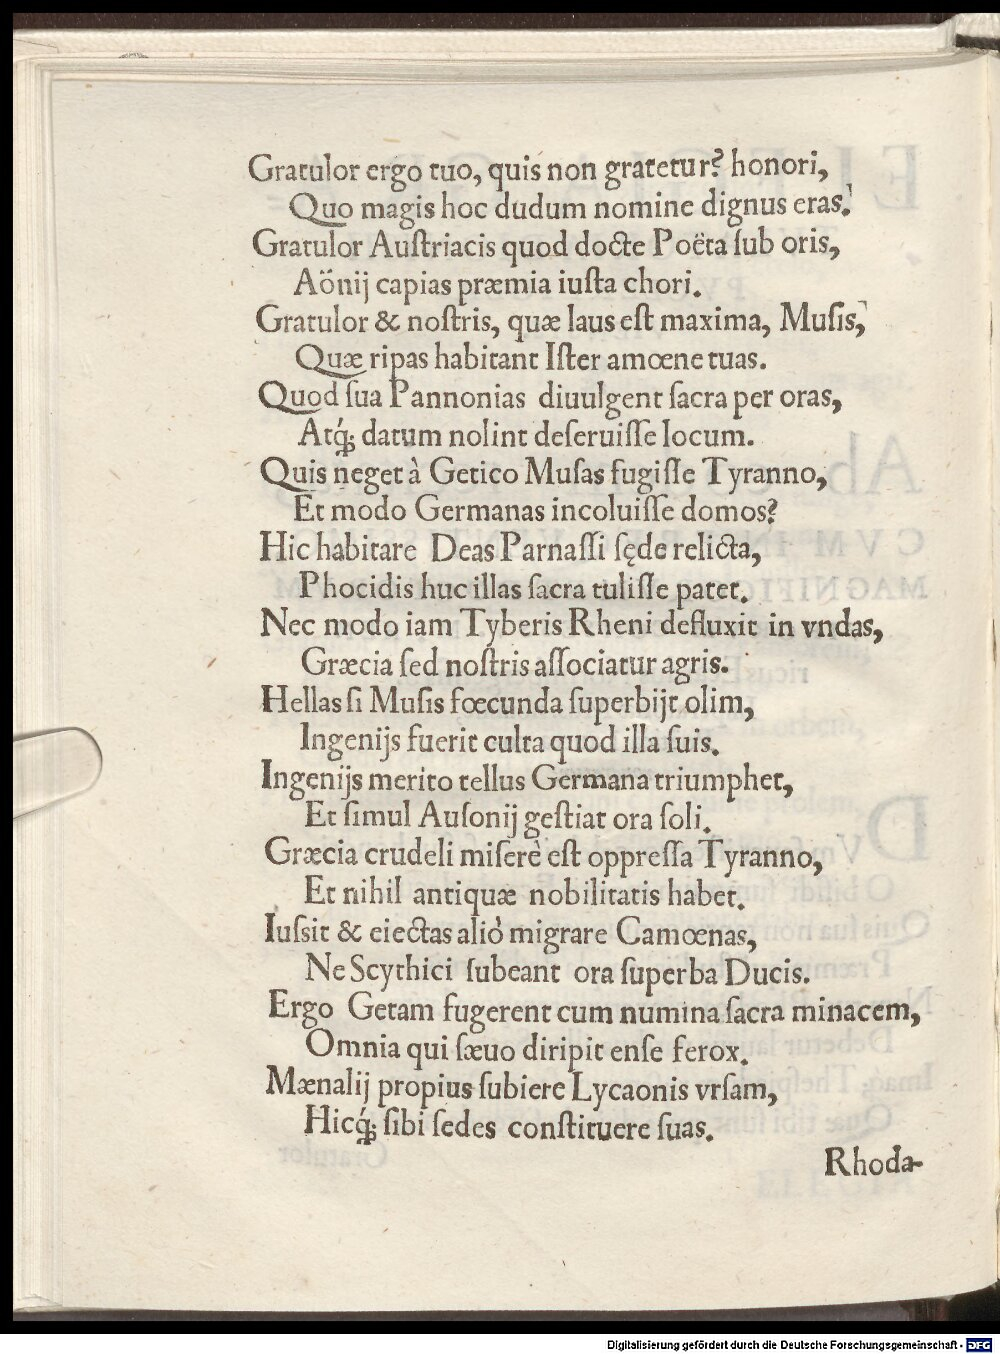 Gratulor ergo tuo, quis non gratetur? honori,
Quo magis hoc dudum nomine dignus eras.
Gratulor Auſtriacis quod docte Poëta ſub oris,
Aönij capias præmia iuſta chori.
Gratulor & noſtris, quæ laus eſt maxima, Muſis,
Quæ ripas habitant Iſter amœne tuas.
Quod ſua Pannonias diuulgent ſacra per oras,
Atq́; datum nolint deſeruiſſe locum.
Quis neget à Getico Muſas fugiſſe Tyranno,
Et modo Germanas incoluiſſe domos?
Hic habitare Deas Parnaſſi ſęde relicta,
Phocidis huc illas ſacra tuliſſe patet.
Nec modo iam Tyberis Rheni defluxit in vndas,
Græcia ſed noſtris aſſociatur agris.
Hellas ſi Muſis fœcunda ſuperbijt olim,
Ingenijs fuerit culta quod illa ſuis.
Ingenijs merito tellus Germana triumphet,
Et ſimul Auſonij geſtiat ora ſoli.
Græcia crudeli miſerè eſt oppreſſa Tyranno,
Et nihil antiquæ nobilitatis habet.
Iuſsit & eiectas aliò migrare Camœnas,
Ne Scythici ſubeant ora ſuperba Ducis.
Ergo Getam fugerent cum numina ſacra minacem,
Omnia qui ſæuo diripit enſe ferox.
Mænalij propius ſubiere Lycaonis vrſam,
Hicq́; ſibi ſedes conſtituere ſuas.
Rhoda-
Digitalisierung gefördert durch die Deutsche Forschungsgemeinschaft - DFG